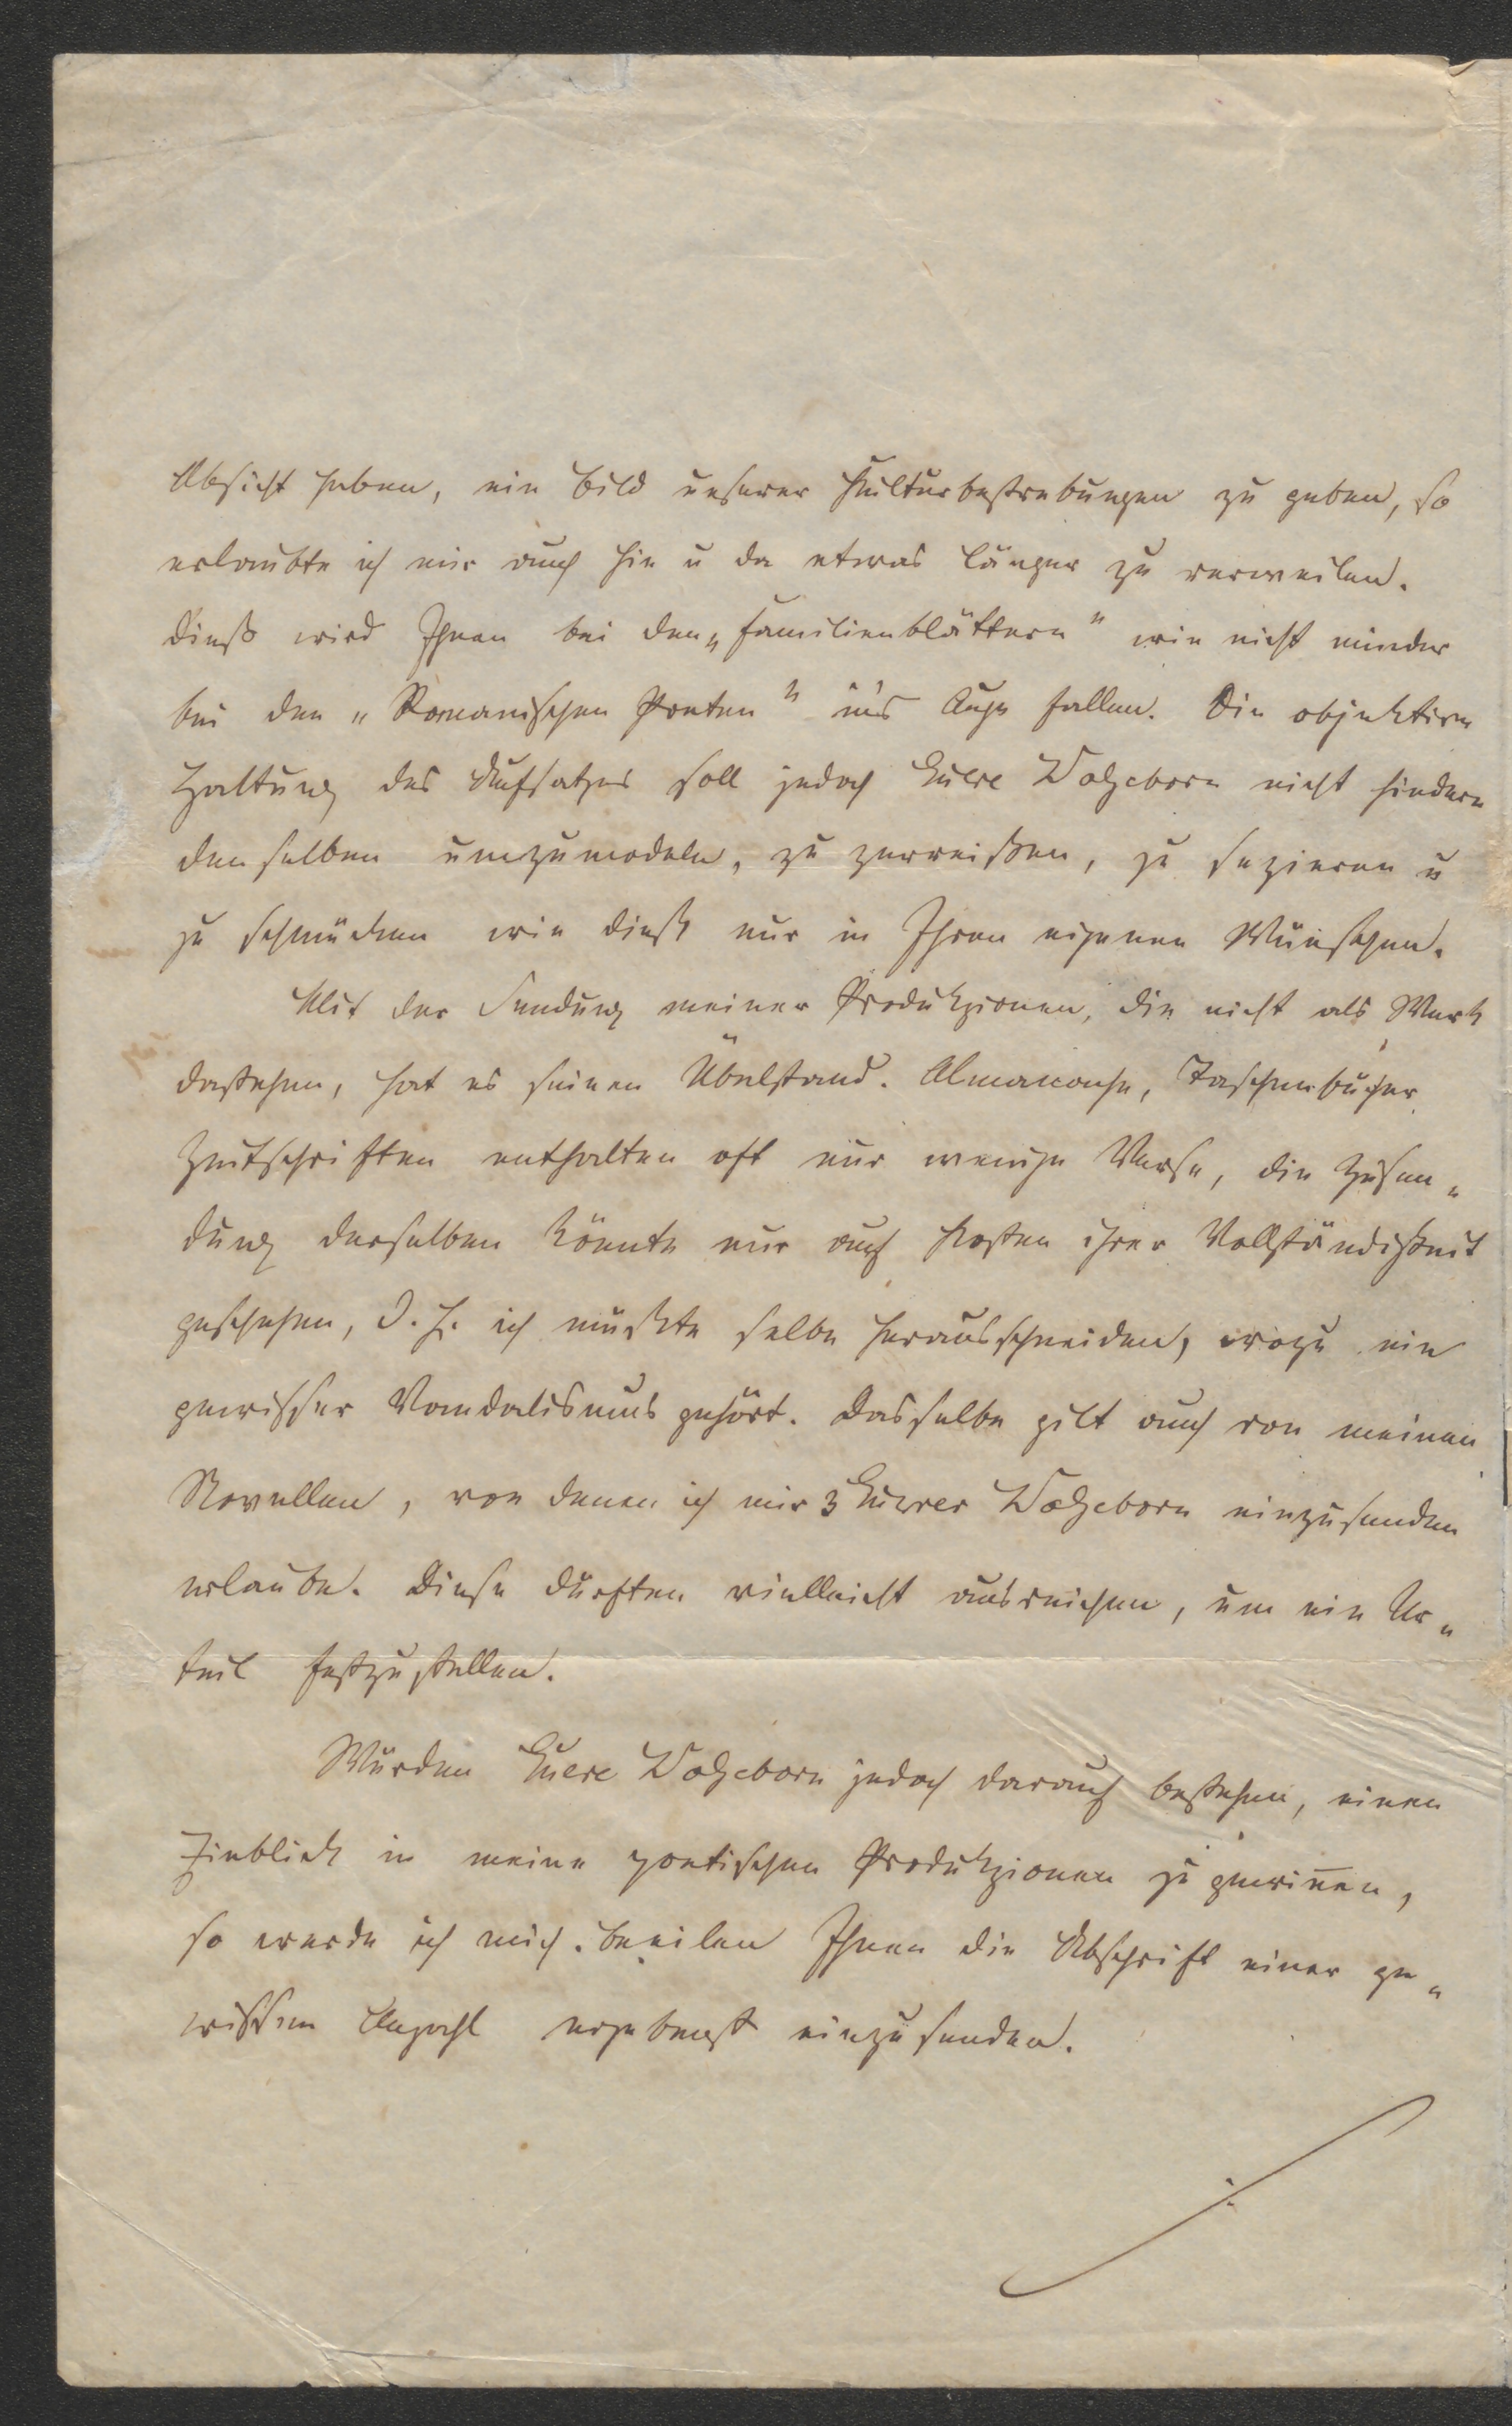 Absicht haben, ein Bild unserer Kulturbestrebungen zu geben, so
erlaubte ich mir auch hie u da etwas länger zu verweilen.
Dieß wird Ihnen bei den „Familienblättern" wie nicht minder
bei den „Romanischen Poeten" in's Auge fallen. Die objektive
Haltung des Aufsatzes soll jedoch Euere Wolgeborn nicht hindern
denselben umzumodeln, zu zerreißen, zu sezieren u
zu schmücken wie dieß nur in Ihren eigenen Wünschen.
Mit der Sendung meiner Produkzionen, die nicht als Werk
dastehen, hat es seinen Übelstand. Almanache, Taschenbücher
Zeitschriften enthalten oft nur wenige Verse, die Zusen„
dung derselben könnte nur auf Kosten ihrer Vollständigkeit
geschehen, d. h. ich müßte selbe herausschneiden, wozu ein
gewisser Vandalismus gehört. Dasselbe gilt auch von meinen
Novellen, von denen ich mir 3 Euerer Wolgeborn einzusenden
erlaube. Diese dürften vielleicht ausreichen, um ein Ur„
teil festzustellen.
Würden Euere Wolgeborn jedoch darauf bestehen, einen
Einblick in meine poetischen Produkzionen zu gewin̄en,
so werde ich mich beeilen Ihnen die Abschrift einer ge„
wissen Anzahl ergebenst einzusenden.